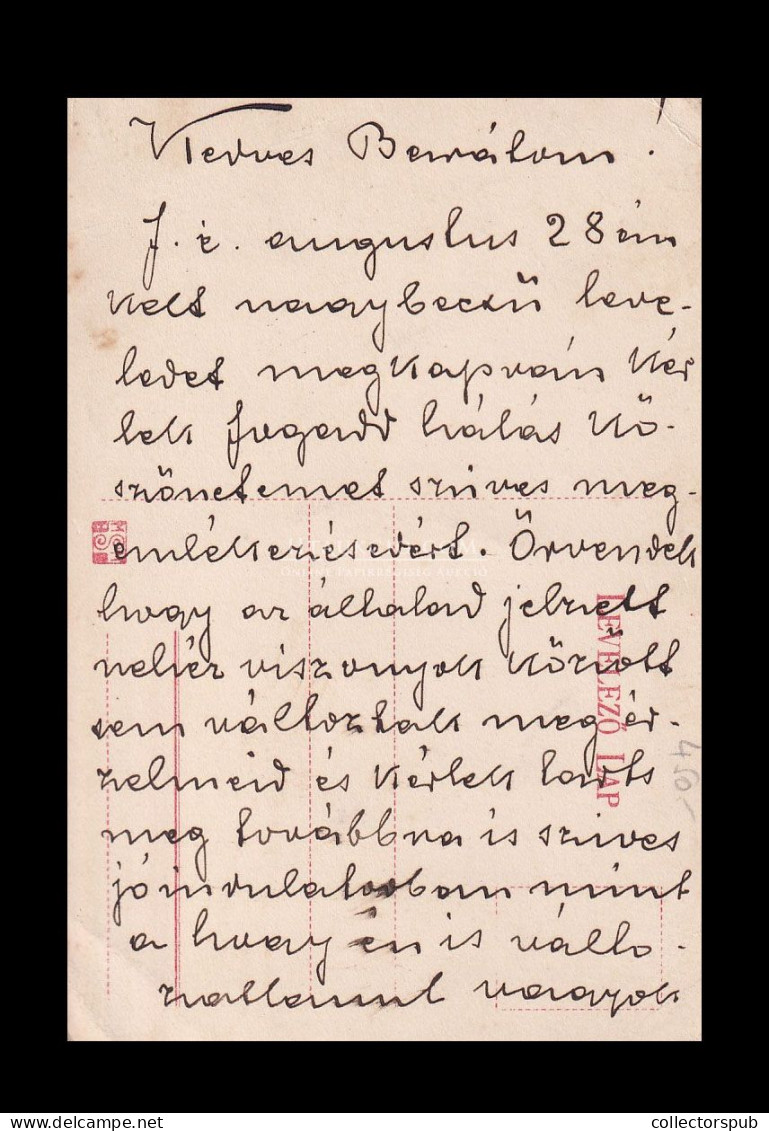 Kedves Barátom!
f. é. augustus 28 án
kelt nagybecsü leve-
ledet megkapván kér
lek fogadd hálás kö-
szönetemet szives meg-
emlékezésedért. Örvendek
hogy az általad jelzett
nehéz viszonyok között
sem változtak meg ér-
zelmeid és kérlek tarts
meg továbbra is szives
jóindulatodban mint
a hogy én is válto-
zatlanul vagyok
LEVELEZŐ LAP
450-
collectorspub